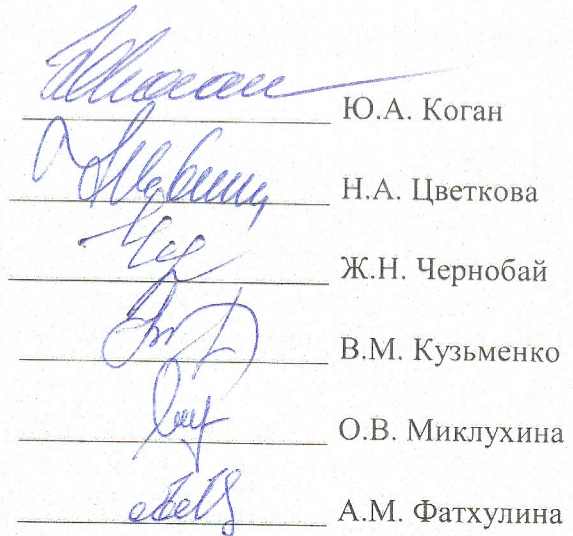 Ю.А. Коган
Н.А. Цветкова
Ж.Н. Чернобай
В.М. Кузьменко
О.В. Миклухина
А.М. Фатхулина